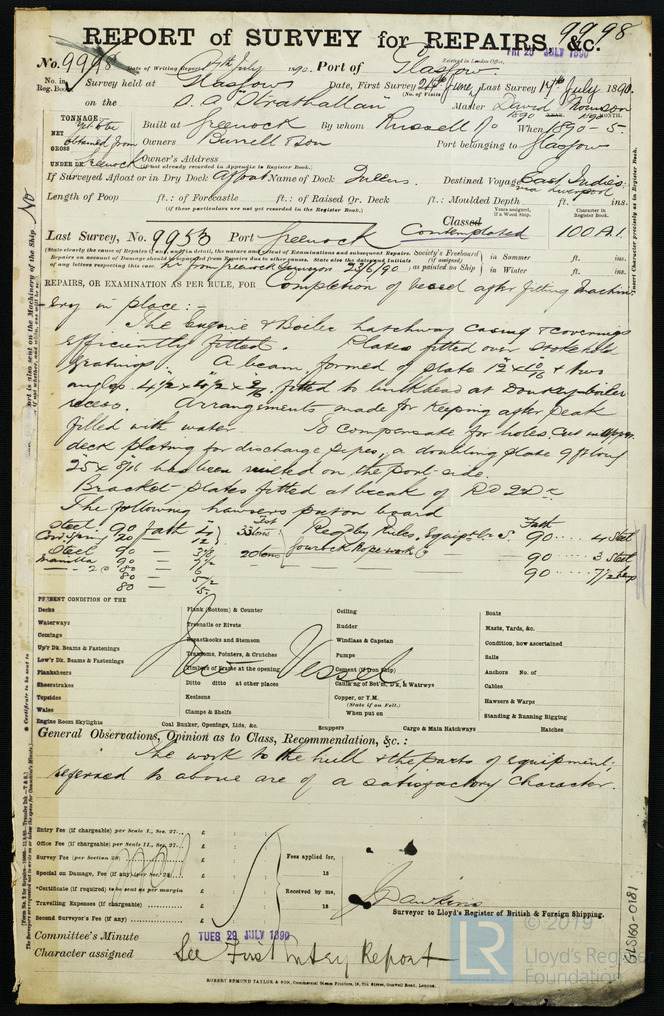 9998
REPORT of SURVEY for REPAIRS, &c.
FRI 25 JULY 1890
No. 9998 Date of Writing Report 24th July 1890. Port of Glasgow
Received in London Office,
No. in Reg. Book Survey held at Glasgow Date, First Survey 24th June Last Survey 14th July 1890.
(No. of Visits)
on the S.S. Strathallan Master David
TONNAGE
NET
GROSS
UNDER DK.
yet to be obtained from Greenock
Built at Greenock By whom Russell & Co When 1890-5.
YEAR. MONTH.
Owners Burrell & Son Port belonging to Glasgow
Owner's Address
(if not already recorded in Appendix to Register Book.)
If Surveyed Afloat or in Dry Dock Afloat Name of Dock Queens. Destined Voyage East Indies via Liverpool
Length of Poop ft.: of Forecastle ft.: of Raised Qr. Deck ft.: Moulded Depth ft. ins.
(if these particulars are not yet recorded in the Register Book.)
Years assigned, if a Wood Ship.
Character in Register Book.
Classed Contemplated 100A1.
Last Survey, No. 9953 Port Greenock
Society's Freeboard (if assigned) as painted on Ship
in Summer ft. ins.
in Winter ft. ins.
of any letters respecting this case. 23/6/90
REPAIRS, OR EXAMINATION AS PER RULE, FOR Completion of vessel after fitting Machin-
-ery in place:-
The Engine & Boiler hatchway casing & coverings
efficiently fitted. Plates fitted over stokehold
gratings. A beam, formed of plate 12" x 10/16 & two
angles 4 1/2 x 4 1/2 x 9/16 fitted to bulkhead at Donkey-boiler
recess. Arrangements made for keeping after Peak
filled with water. To compensate for holes, cut in upper
deck plating for discharge pipes, a doubling plate 9ft long
25 x 8/16 has been riveted on the port side.
Bracket-plates fitted at break of RQDk
The following hawsers put on board
Steel 90 Fath 4 Test 33 tons Reqd by Rules, Equipt No Fath 90 ... 4 Steel
Steel 90 — 20 tons Gourock Ropework Co 90 — 3 Steel
Manilla 90 — 90 — 7 1/2
80 — 6
80 — 5 1/2
80 — 5
PRESENT CONDITION OF THE
Decks
Waterways
Comings
Up'r Dk. Beams & Fastenings
Low'r Dk. Beams & Fastenings
Planksheers
Sheerstrakes
Topsides
Wales
Engine Room Skylights
Plank (Bottom) & Counter
Treenails or Rivets
Breasthooks and Stemson
Transoms, Pointers, & Crutches
Timbers of Frame at the opening
Ditto ditto at other places
Keelsons
Clamps & Shelfs
Coal Bunker, Openings, Lids, &c.
Ceiling
Rudder
Windlass & Capstan
Pumps
Cement (if Iron Ship)
Caulk'ng of Bot'm, D'k, & Watrwys
Copper, or Y.M.
(State if on Felt.)
When put on
Scuppers
Cargo & Main Hatchways
Boats
Masts, Yards, &c.
Condition, how ascertained
Sails
Anchors No. of
Cables
Hawsers & Warps
Standing & Running Rigging
Hatches
New Vessel
General Observations, Opinion as to Class, Recommendation, &c.:
The work to the hull & the parts of equipment,
referred to above are of a satisfactory character.
Entry Fee (if chargeable) per Scale I., Sec. 27... £ : :
Office Fee (if chargeable) per Scale II., Sec. 27... £ : :
Survey Fee (per Section 28) £ : :
Special on Damage, Fee (if any) (per Sec. 28) £ : :
*Certificate (if required) to be sent as per margin £ : :
Travelling Expenses (if chargeable) £ : :
Second Surveyor's Fee (if any) £ : :
Fees applied for,
18
Received by me,
18
J Dawkins
Surveyor to Lloyd's Register of British & Foreign Shipping.
Committee's Minute TUES 29 JULY 1890
Character assigned See First Entry Report
ROBERT EDMUND TAYLOR & SON, Commercial Steam Printers, 19, Old Street, Goswell Road, London.
GLS160-0181
© 2019
LR
Lloyd's Register
Foundation